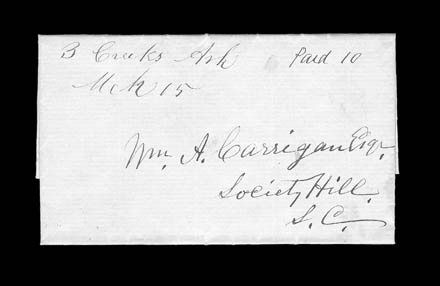 3 Creeks Ark Paid 10
Mch 15
Wm. A. Carrigan Esqr.
Society Hill.
S. C.